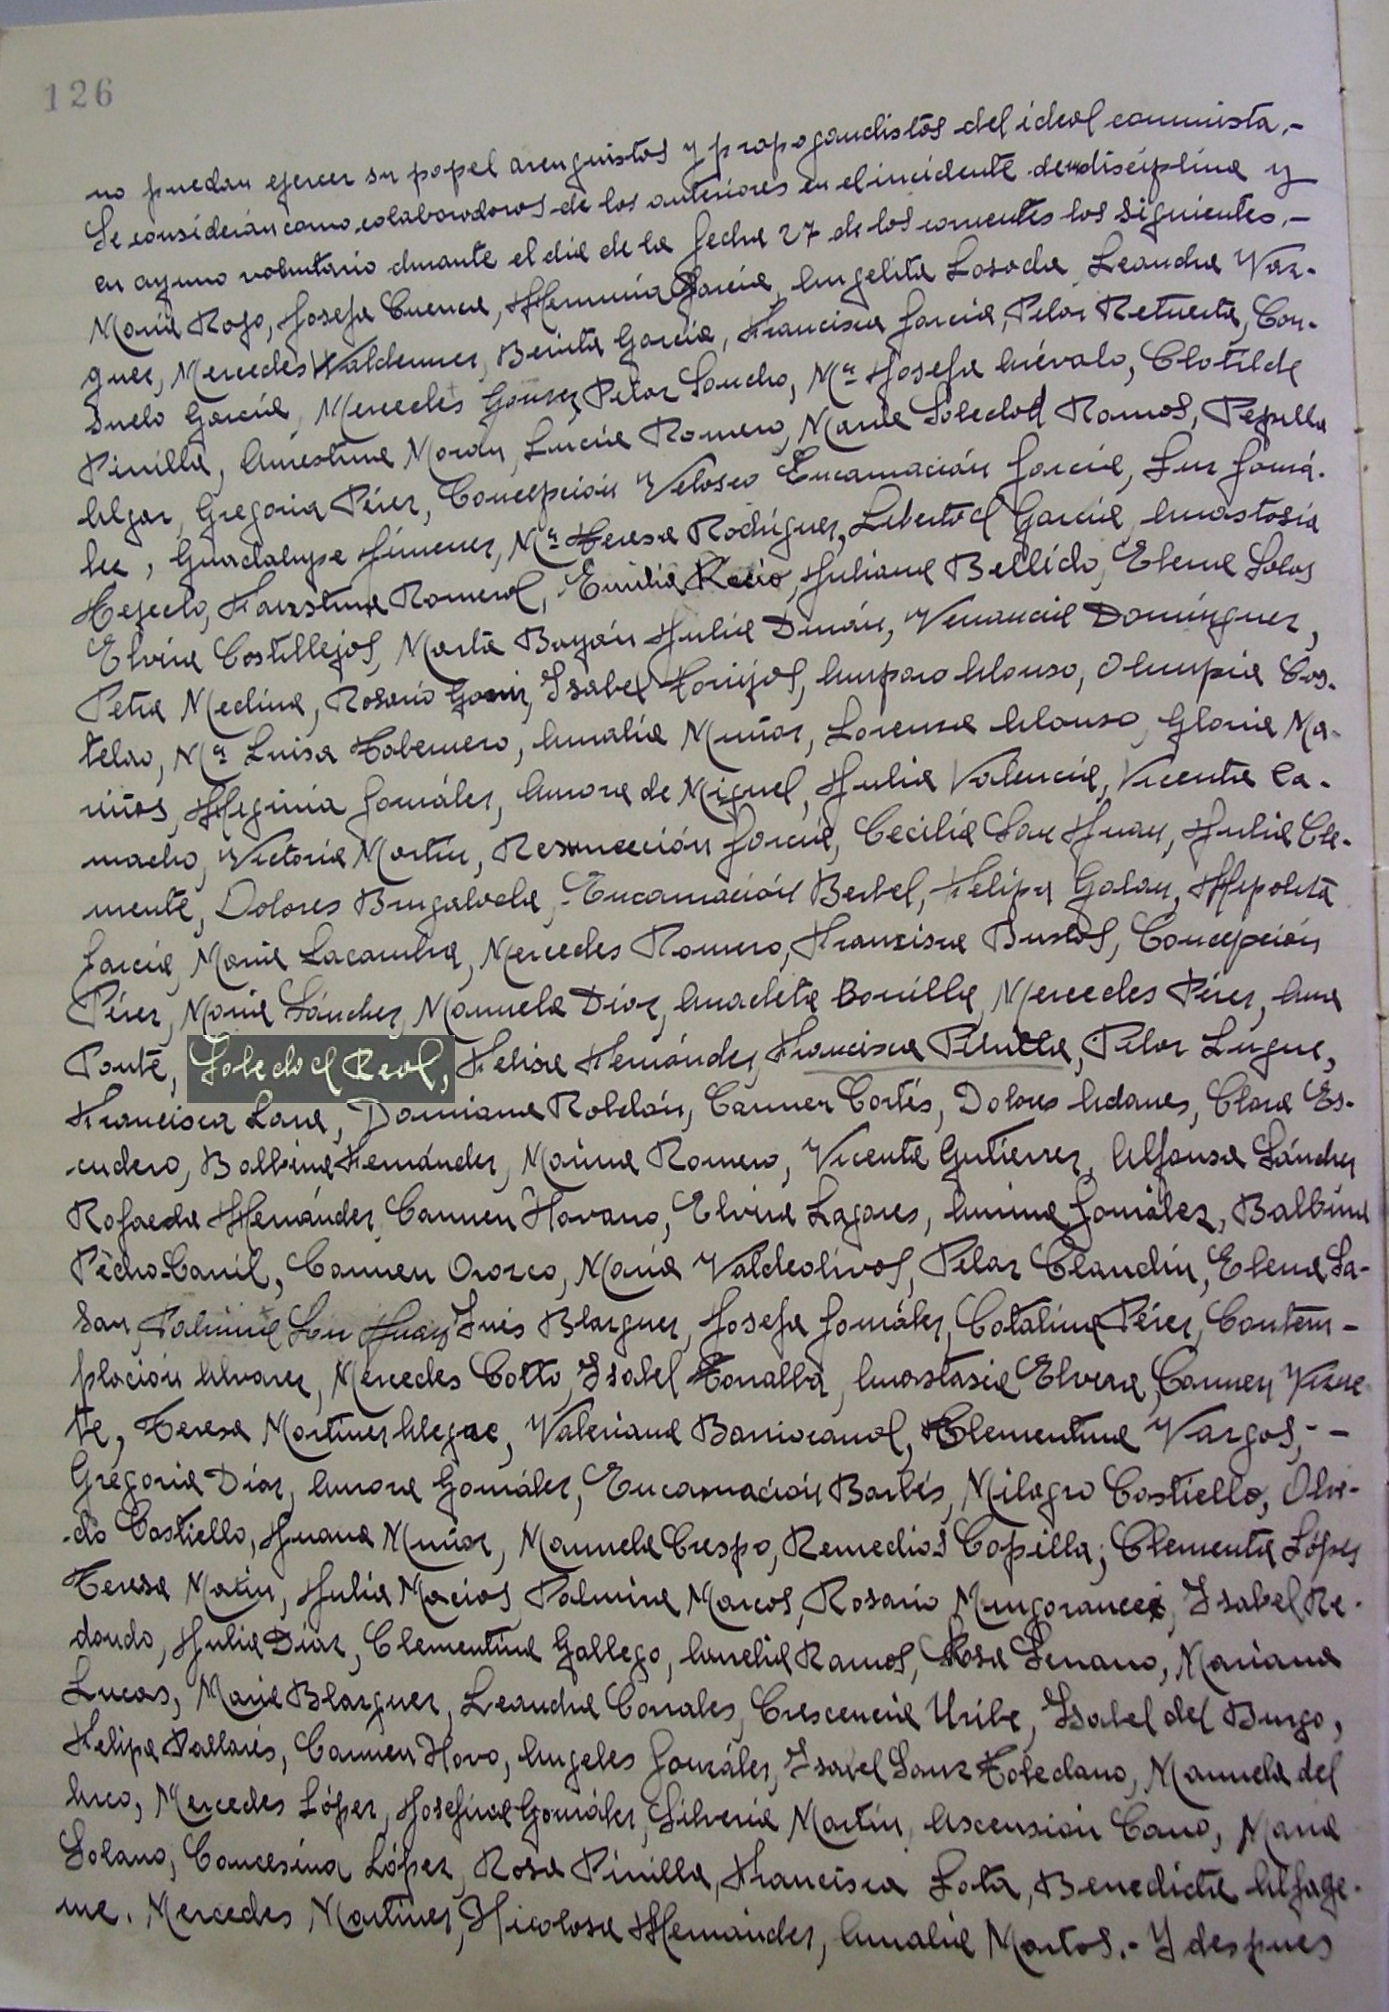 126
no puedan ejercer su papel arenguistas y propagandistas del ideal comunista.-
Se considerán como colaboradoros de los anteriores en el incidente de indisciplina y
en ayuno voluntario durante el dia de la fecha 27 de los corrientes los siguientes.-
Maria Rojo, Josefa Cuenca, Herminia García, Angelita Losada, Leandra Vaz-
quez, Mercedes Valdemer, Benita García, Francisca García, Pilar Retuerta, Con-
suelo García, Mercedes Gomez, Pilar Sancho, Mª Josefa Arévalo, Clotilde
Pinilla, Morán, Lucia Romero, Maria Soledad Ramos, Pepilla
Algar, Gregoria Pérez, Concepción Velasco Encarnación García, Luz Gonzá-
lez, Guadalupe Jimenez, Mª Teresa Rodríguez, Libertad García, Anastasia
Tejeelo, Faustina Romeral, Emilia Recio, Juliana Bellido, Elena Solas
Elvira Castillejos, Marta Bayón Julia Dinán, Venancia Domínguez,
Petra Medina, Rosario Isabel Torrijos, Amparo Alonso, Olimpia Cas-
telao, Mª Luisa Tabernero, Amalia Muñoz, Lorenza Alonso, Gloria Ma-
riños, Higinia González, Aurora de Miguel, Julia Valencia, Vicenta Ca-
macho, Victoria Martin, Resurrección García, Cecilia San Juan, Julia Cle-
mente, Dolores Brugaloda, Encarnación Berbel, Felipa Galan, Hipolita
García, Maria Lacambra, Mercedes Romero, Francisca Bustos, Concepción
Pérez, Maria Sánchez, Manuela Díaz, Anacleta Bonilla, Mercedes Pérez, Ana
Ponte, Soledad Real, Felisa Hernández, Francisca Pinilla, Pilar Luque,
Francisca Lara, Damiana Roldán, Carmen Cortés, Dolores Adanes, Clara Es-
cudero, Balbina Fernández, Marina Romero, Vicenta Gutierrez, Alfonsa Sánchez
Rafaela Hernández, Carmen Navarro, Elvira Lagares, Anima González, Balbina
Pécho-Carril, Carmen Orozco, Maria Valdeolivos, Pilar Claudín, Elena La-
san, Palmira San Juan Inés Blazquez, Josefa González, Catalina Pérez, Contem-
plación Alvarez, Mercedes Cotto, Isabel Torralba, Anastasia Elvera, Carmen Vicue-
te, Teresa Martinez Valeriana Barriocanal, Clementina Vargas,--
Gregoria Díaz, Aurora González, Encarnación Barbés, Milagro Castiello, Olvi-
do Castiello, Juana Muñoz, Manuela Crespo, Remedios Copilla; Clementa López
Teresa Marin, Julia Macias Palmira Marcos, Rosario Mungorance, Isabel Re-
dondo, Julia Díaz, Clementina Gallego, Amelia Ramos, Rosa Serrano, Mariana
Lucas, Maria Blazquez, Leandra Corrales, Crescencia Uribe, Isabel del Burgo,
Felipa Pallarés, Carmen Novo, Angeles González, Isabel Sanz Toledano, Manuela del
Arco, Mercedes López, Josefina González, Silveria Martín, Ascensión Cano, Maria
Solano, Concesina López, Rosa Pinilla, Francisca Sota, Benedicta Alfage-
me. Mercedes Martinez, Nicolasa Hernández, Amalia Martos.- Y despues